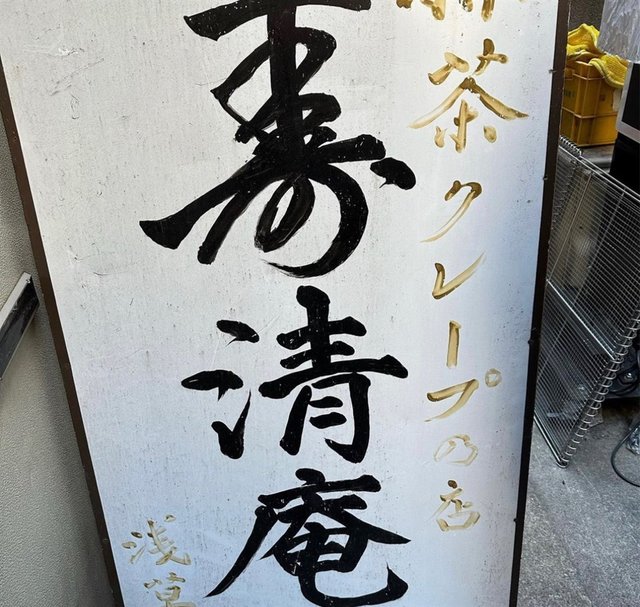 茶クレープの店
寿清庵
浅草